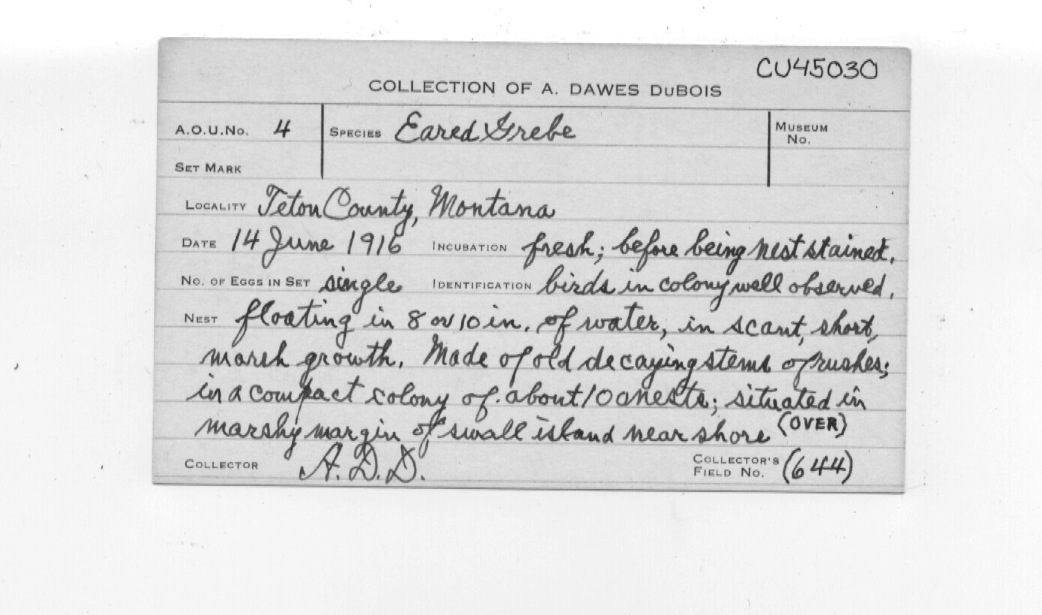 CU45030
COLLECTION OF A. DAWES DUBOIS
A.O.U.No. 4 SPECIES Eared Grebe MUSEUM No.
SET MARK
LOCALITY Teton County, Montana
DATE 14 June 1916 INCUBATION fresh; before being nest stained.
No. OF EGGS IN SET single IDENTIFICATION birds in colony well observed.
NEST floating in 8 or 10 in. of water, in scant, short,
marsh growth. Made of old decaying stems of rushes;
in a compact colony of about 100 nests; situated in
marshy margin of small island near shore (OVER)
COLLECTOR A.D.D. COLLECTOR'S FIELD No. (644)